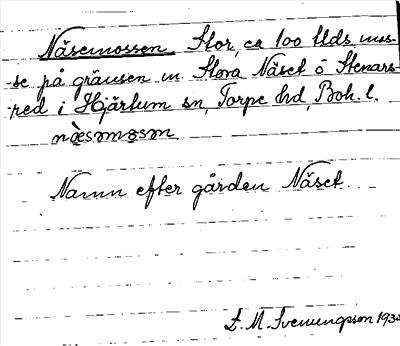 Näsemossen. Stor, ca 100 tlds mos-
se på gränsen m Stora Näset o Stenars-
red i Hjärtum sn, Torpe hd, Boh. l.
næ̀sɔmɔsɔn
Namn efter gården Näset.
E. M. Svenungsson 193